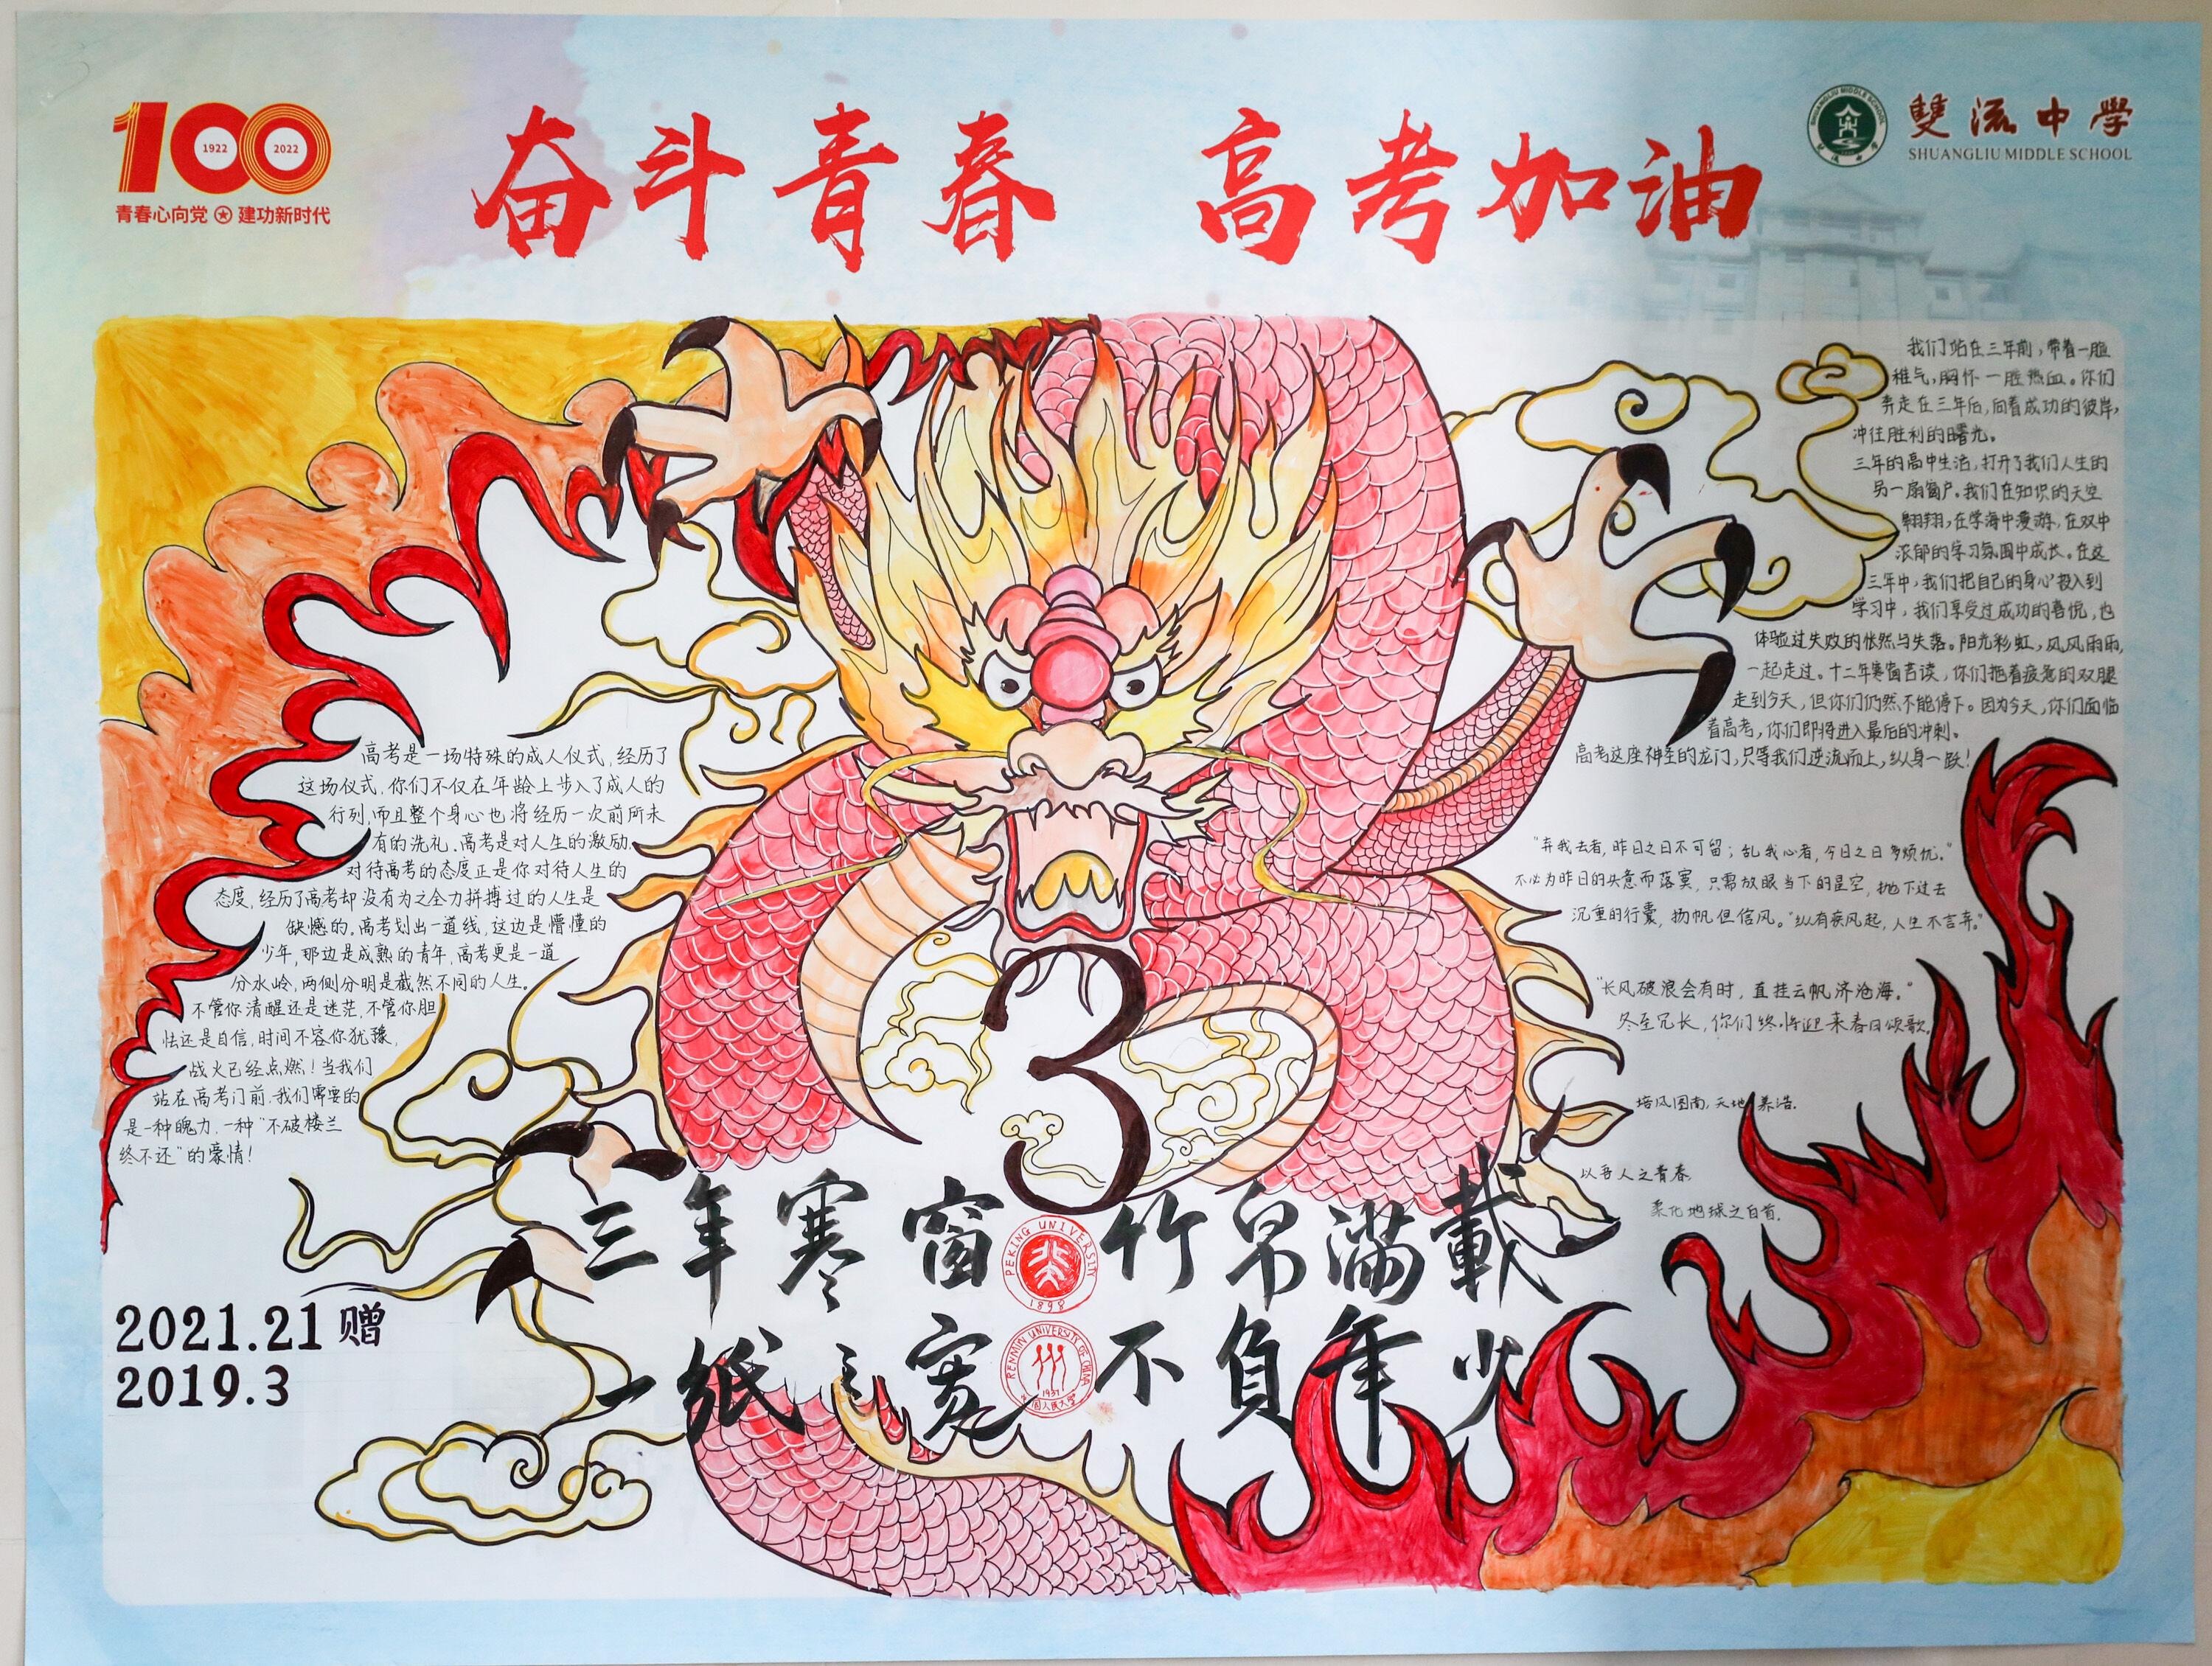 100
1922
2022
青春心向党 建功新时代
奋斗青春 高考加油
SHUANGLIU MIDDLE SCHOOL
雙流中學
雙流中學
SHUANGLIU MIDDLE SCHOOL
高考是一场特殊的成人仪式,经历了
这场仪式,你们不仅在年龄上步入了成人的
行列,而且整个身心也将经历一次前所未
有的洗礼.高考是对人生的激励,
对待高考的态度正是你对待人生的
态度,经历了高考却没有为之全力拼搏过的人生是
缺憾的.高考划出一道线,这边是懵懂的
少年,那边是成熟的青年,高考更是一道
分水岭,两侧分明是截然不同的人生.
不管你清醒还是迷茫,不管你胆
怯还是自信,时间不容你犹豫,
战火已经点燃!当我们
站在高考门前,我们需要的
是一种魄力,一种“不破楼兰
终不还”的豪情!
我们站在三年前,带着一脸
稚气,胸怀一腔热血。你们
奔走在三年后,向着成功的彼岸,
冲往胜利的曙光。
三年的高中生活,打开了我们人生的
另一扇窗户。我们在知识的天空
翱翔,在学海中漫游,在双中
浓郁的学习氛围中成长。在这
三年中,我们把自己的身心投入到
学习中,我们享受过成功的喜悦,也
体验过失败的怅然与失落。阳光彩虹,风风雨雨,
一起走过。十二年寒窗苦读,你们拖着疲惫的双腿
走到今天,但你们仍然不能停下。因为今天,你们面临
着高考,你们即将进入最后的冲刺。
高考这座神圣的龙门,只等我们逆流而上,纵身一跃!
“弃我去者,昨日之日不可留;乱我心者,今日之日多烦忧。”
不必为昨日的失意而落寞,只需放眼当下的星空,抛下过去
沉重的行囊,扬帆但信风。“纵有疾风起,人生不言弃。”
“长风破浪会有时,直挂云帆济沧海。”
冬至冗长,你们终将迎来春日颂歌.
培风图南,天地养浩.
以吾人之青春,
柔化地球之白首.
3
三年寒窗 竹帛满載
PEKING UNIVERSITY
1898
一纸之宽 不負年少
RENMIN UNIVERSITY OF CHINA
1937
中国人民大学
2021.21赠
2019.3